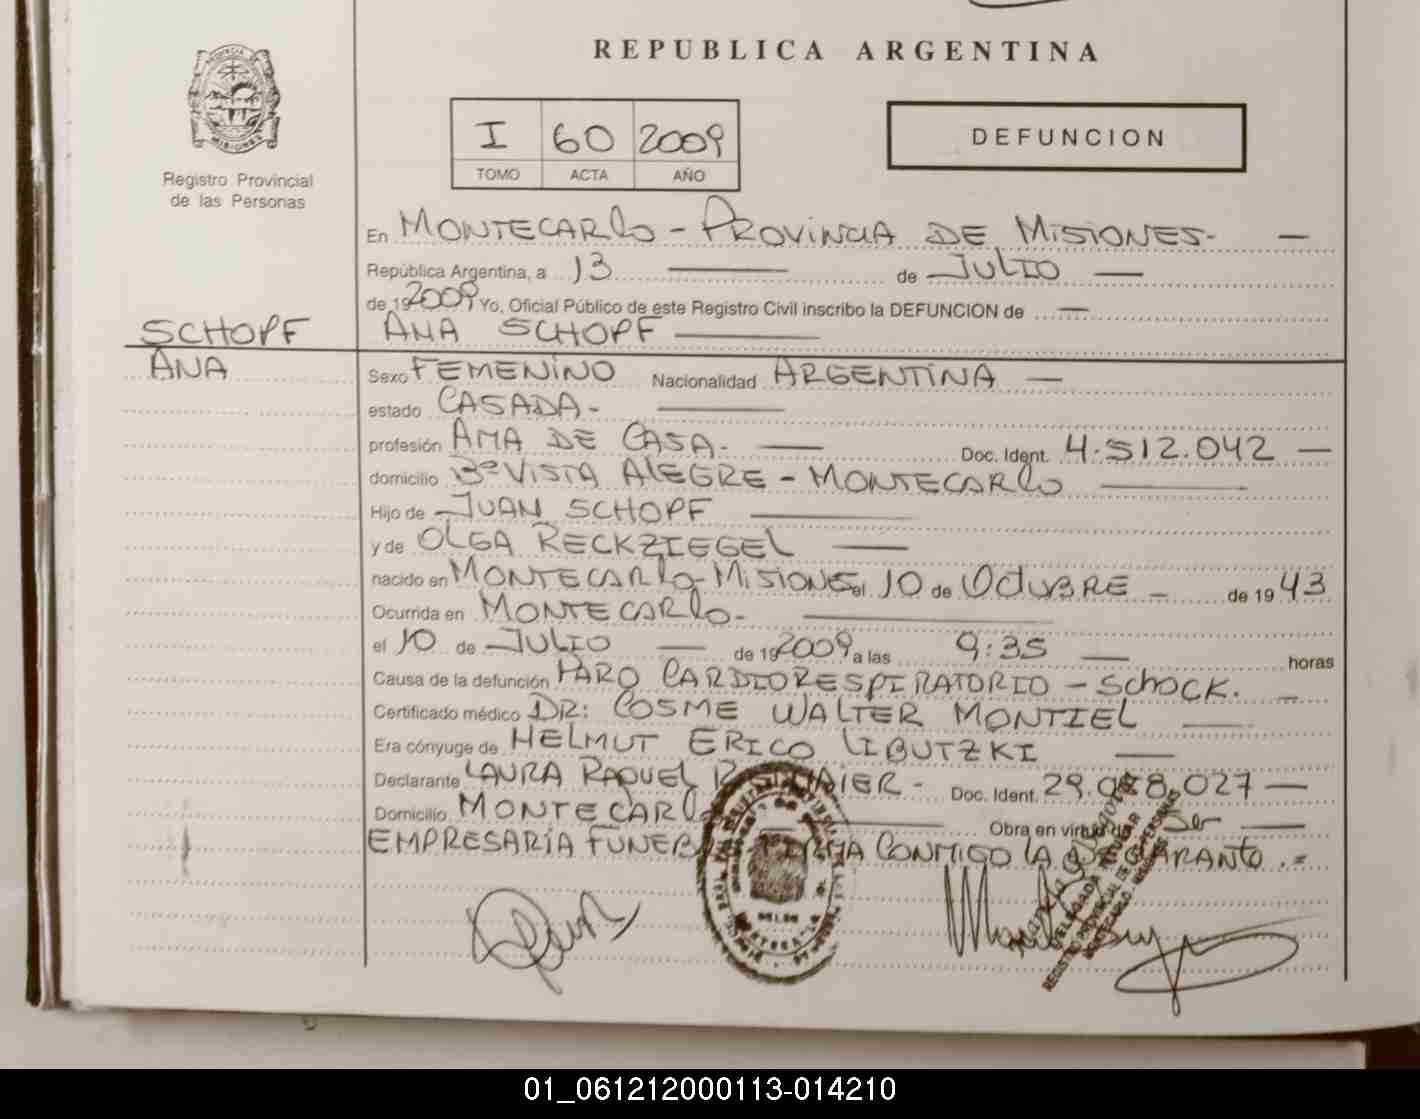 REPUBLICA ARGENTINA
PROVINCIA
MISIONES
Registro Provincial
de las Personas
I 60 2009
TOMO ACTA AÑO
DEFUNCION
En MONTECARlO - PROVINCIA DE MISIONES. —
República Argentina, a 13 — de JULIO —
de 19 2009 Yo, Oficial Público de este Registro Civil inscribo la DEFUNCION de —
SCHOPF ANA SCHOPF —
ANA
Sexo FEMENINO Nacionalidad ARGENTINA —
estado CASADA- —
profesión AMA DE CASA. — Doc. Ident. 4.512.042 —
domicilio Bº VISTA AlEGRE - MONTECARlO —
Hijo de JUAN SCHOPF —
y de OLGA RECKZIEGEL —
nacido en MONTECARlO-MISIONES el 10 de OCTUBRE — de 19 43
Ocurrida en MONTECARlO- —
el 10 de JULIO — de 19 2009 a las 9:35 — horas
Causa de la defunción PARO CARDIORESPIRATORIO - SCHOCK. —
Certificado médico DR: COSME WALTER MONTIEL —
Era cónyuge de HELMUT ERICO LIBUTZKI —
Declarante LAURA RAQUEL - Doc. Ident. 29. 027 —
Domicilio MONTECARlO — Obra en virtud de Ser —
EMPRESARIA FUNEB FIRMA CONMIGO LA
DELEGADA TITULAR
REGISTRO PROVINCIAL DE LAS PERSONAS
MONTECARLO - MISIONES
01_061212000113-014210